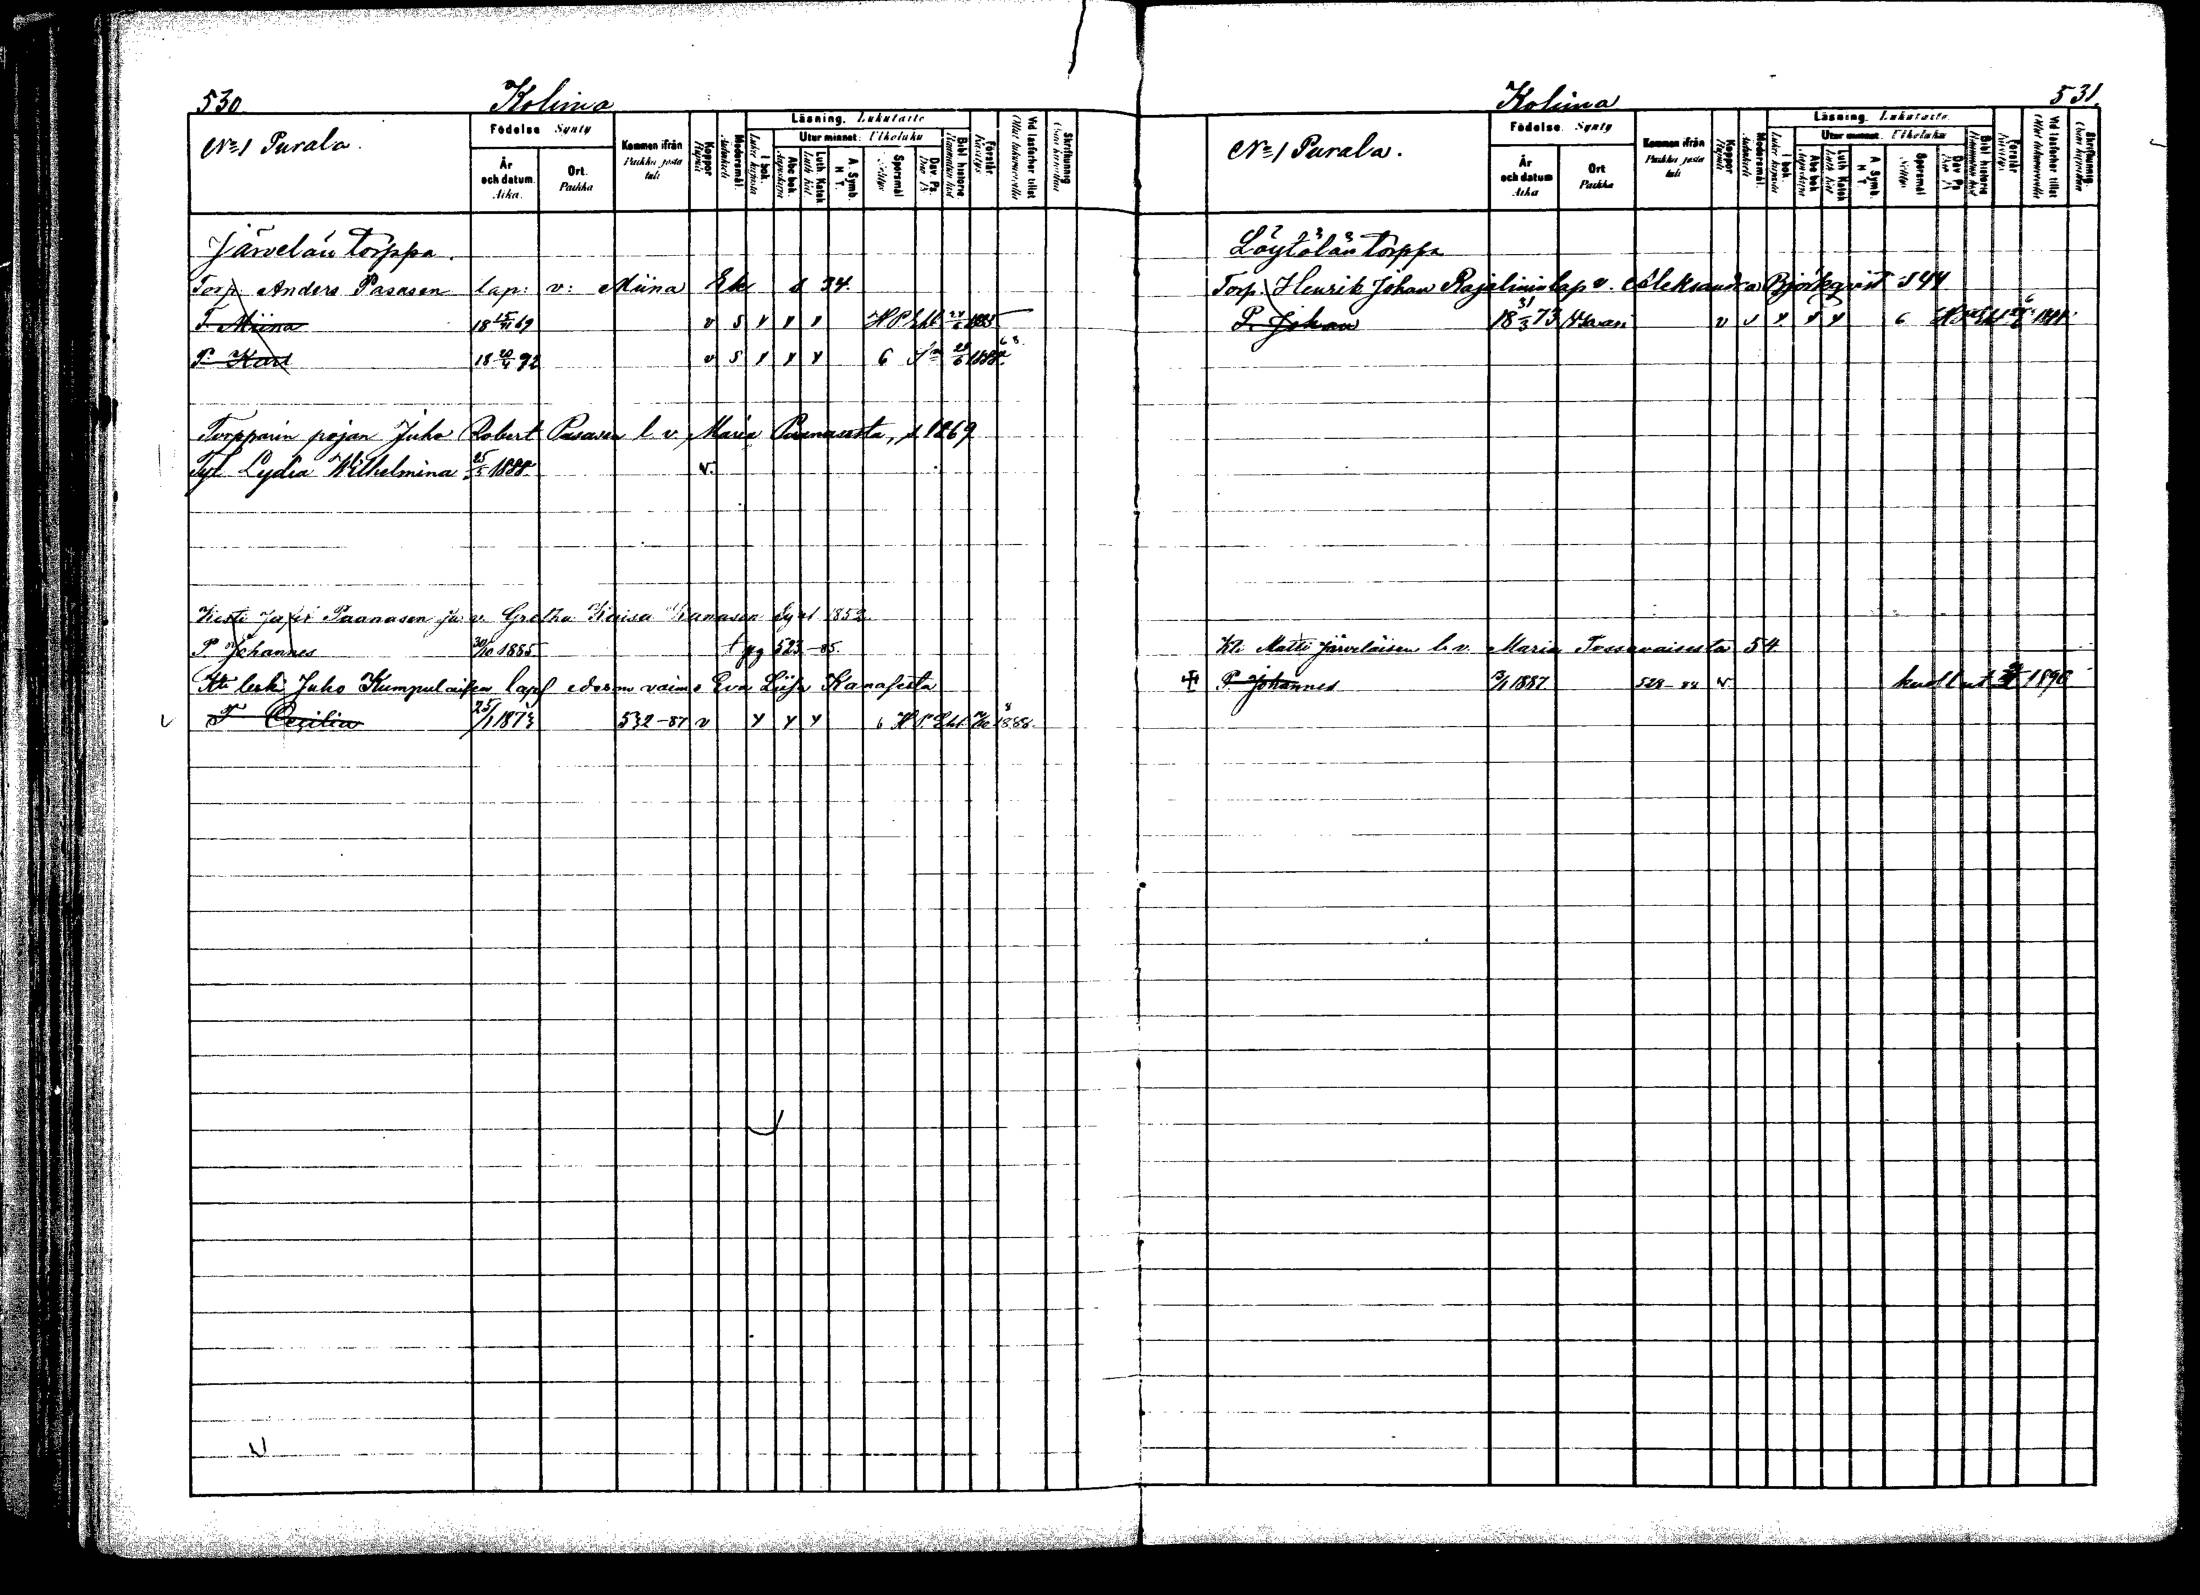 530. Kolima
No 1 Purala.
Födelse Synty
År och datum. Aika.
Ort. Paikka
Kommen ifrån Paikka josta tuli
Koppor Rupuli
Modersmål. Äidinkieli
Läsning. Lukutaito
I bok. Luku kirjasta
Utur minnet: Ulkoluku
Abc bok. Aapiskirja
Luth. Katek. Luth. Kat.
A. Symb. H. T.
Spörsmål
Dav. Ps.
Bibl. historia.
Förstår Käsitys
Vid läsförhör tillst
Skrifkunnig
Järvelän torppa.
Torp. Anders Pasasen lap: v: Miina Ek s 34.
T. Miina 18 15/11 69 v s y y y H P Ehl 24/6 1885
P. Karl 18 20/4 72 v s y y y 6 28/6 1888
Torpparin pojan Juho Robert Pasasen l. v. Maria Paanasesta, s 1869
Tyt. Lydia Wilhelmina 25/5 1888 v.
Kesti Paanasen ja v. Gretha Kaisa Kanasen 1852
P. Johannes 30/10 1885 † pg 523-85.
Kti leski Juho Kumpulaisen lapf edesm vaimo Eva Liisa Kanasesta
T Cecilia 25/1 1873 532-87 v y y y 6 H P Ehl 1888.
Kolima 531.
No 1 Purala.
Födelse. Synty
År och datum Aika
Ort Paikka
Kommen ifrån Paikka josta tuli
Koppor Rupuli
Modersmål. Äidinkieli
Läsning. Lukutaito.
I bok. Luku kirjasta
Utur minnet. Ulkoluku
Abc bok
Luth. Katek
A Symb. H T.
Spörsmål
Dav. Ps
Bibl. historia
Förstår Käsitys
Vid läsförhör tillst
Skrifkunnig.
Löytölän torppa
Torp. Henrik Johan Rajalinin lap v. Aleksandra Björkqvist s 44
P. Johan 18 31/3 73 v y y y 6
Kti Matti Järveläisen l. v. Maria Tossavaisesta 54
P. Johannes 1887. 528-84 v. kuollut 1890